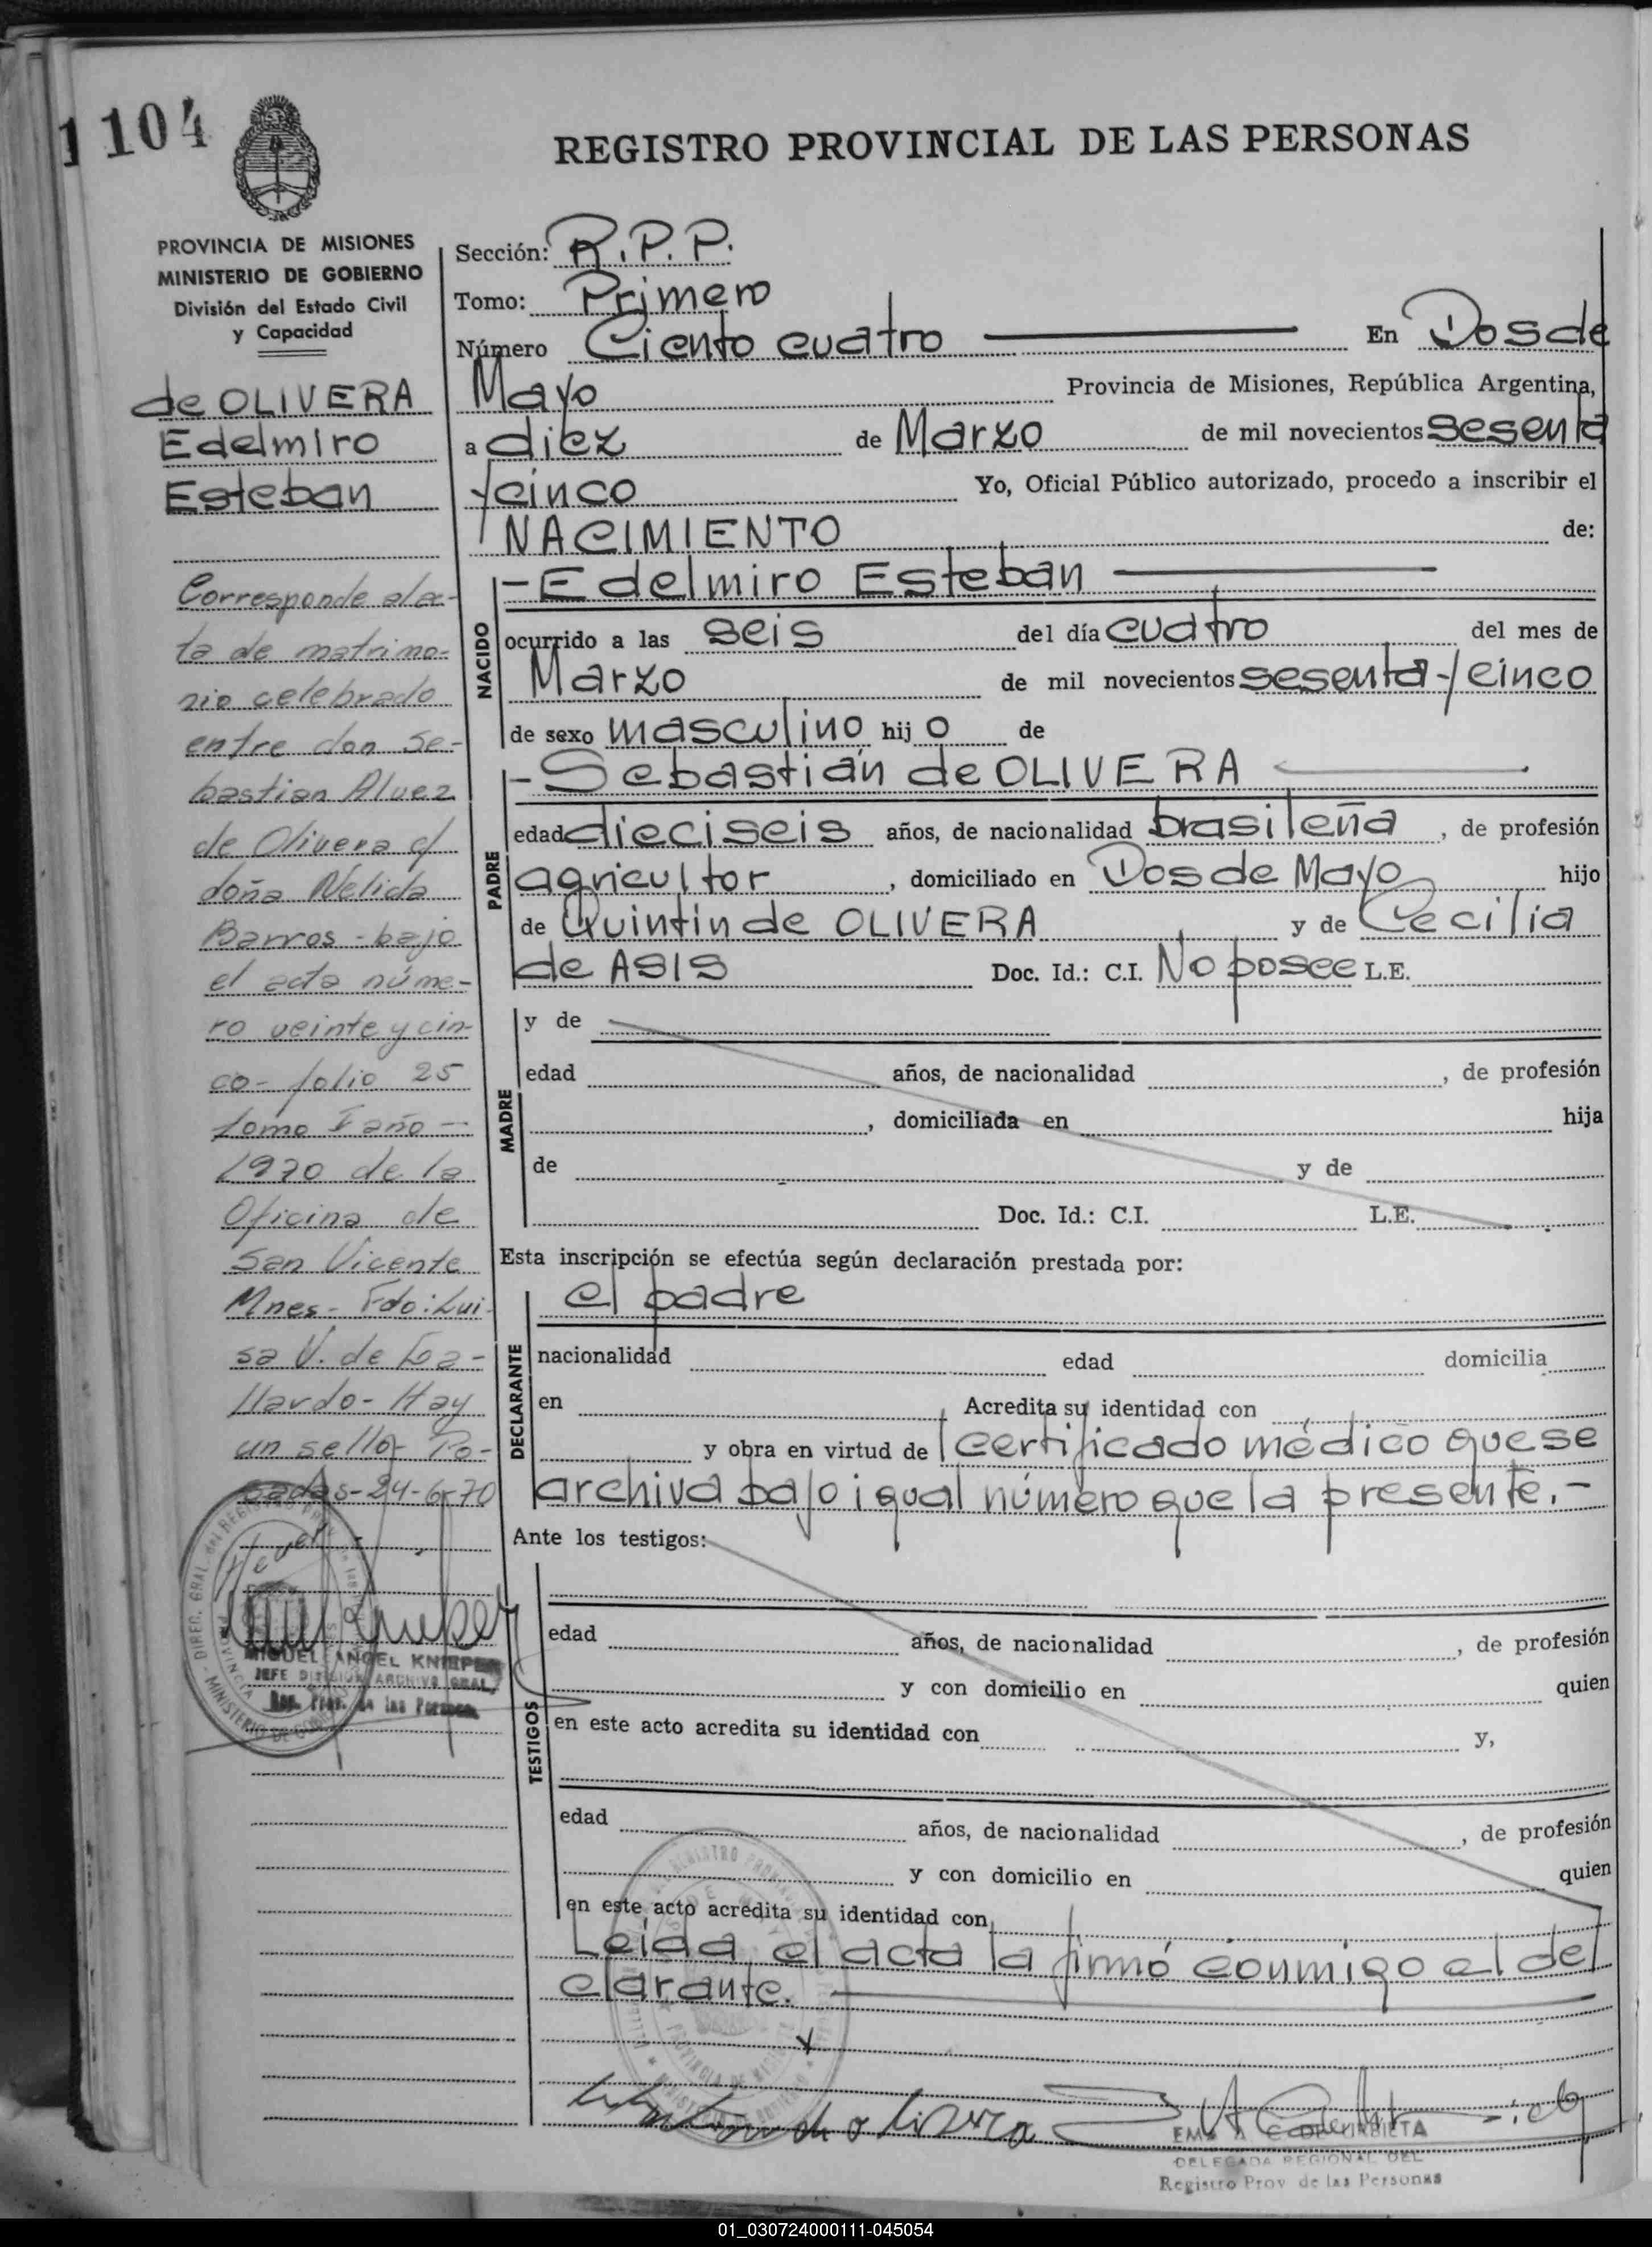 1104
REGISTRO PROVINCIAL DE LAS PERSONAS
PROVINCIA DE MISIONES
MINISTERIO DE GOBIERNO
División del Estado Civil
y Capacidad
de OLIVERA
Edelmiro
Esteban
Corresponde al ac-
ta de matrimo-
nio celebrado
entre don Se-
bastian Alvez
de Olivera c/
doña Nelida
Barros - bajo
el acta núme-
ro veinte y cin-
co - folio 25
tomo I año -
1970 de la
Oficina de
San Vicente
Mnes - Fdo: Lui-
sa V. de
llardo - Hay
un sello - Po-
sadas - 24-6-70
MIGUEL ANGEL KNIEPER
JEFE DIVISION ARCHIVO GRAL.
Reg. Prov. de las Personas
Sección: R.P.P.
Tomo: Primero
Número Ciento cuatro En Dos de
Mayo Provincia de Misiones, República Argentina,
a diez de Marzo de mil novecientos sesenta
y cinco Yo, Oficial Público autorizado, procedo a inscribir el
NACIMIENTO de:
NACIDO
- Edelmiro Esteban
ocurrido a las seis del día cuatro del mes de
Marzo de mil novecientos sesenta y cinco
de sexo masculino hij o de
PADRE
- Sebastián de OLIVERA
edad dieciseis años, de nacionalidad brasileña, de profesión
agricultor, domiciliado en Dos de Mayo hijo
de Quintin de OLIVERA y de Cecilia
de ASIS Doc. Id.: C.I. No posee L.E.
MADRE
y de
edad años, de nacionalidad , de profesión
, domiciliada en hija
de y de
Doc. Id.: C.I. L.E.
Esta inscripción se efectúa según declaración prestada por:
DECLARANTE
el padre
nacionalidad edad domicilia
en Acredita su identidad con
y obra en virtud de certificado médico que se
archiva bajo igual número que la presente.-
Ante los testigos:
TESTIGOS
edad años, de nacionalidad , de profesión
y con domicilio en quien
en este acto acredita su identidad con y,
edad años, de nacionalidad , de profesión
y con domicilio en quien
en este acto acredita su identidad con
Leída el acta la firmó conmigo el de
clarante.
de olivera
DELEGADA REGIONAL DEL
Registro Prov de las Personas
01_030724000111-045054